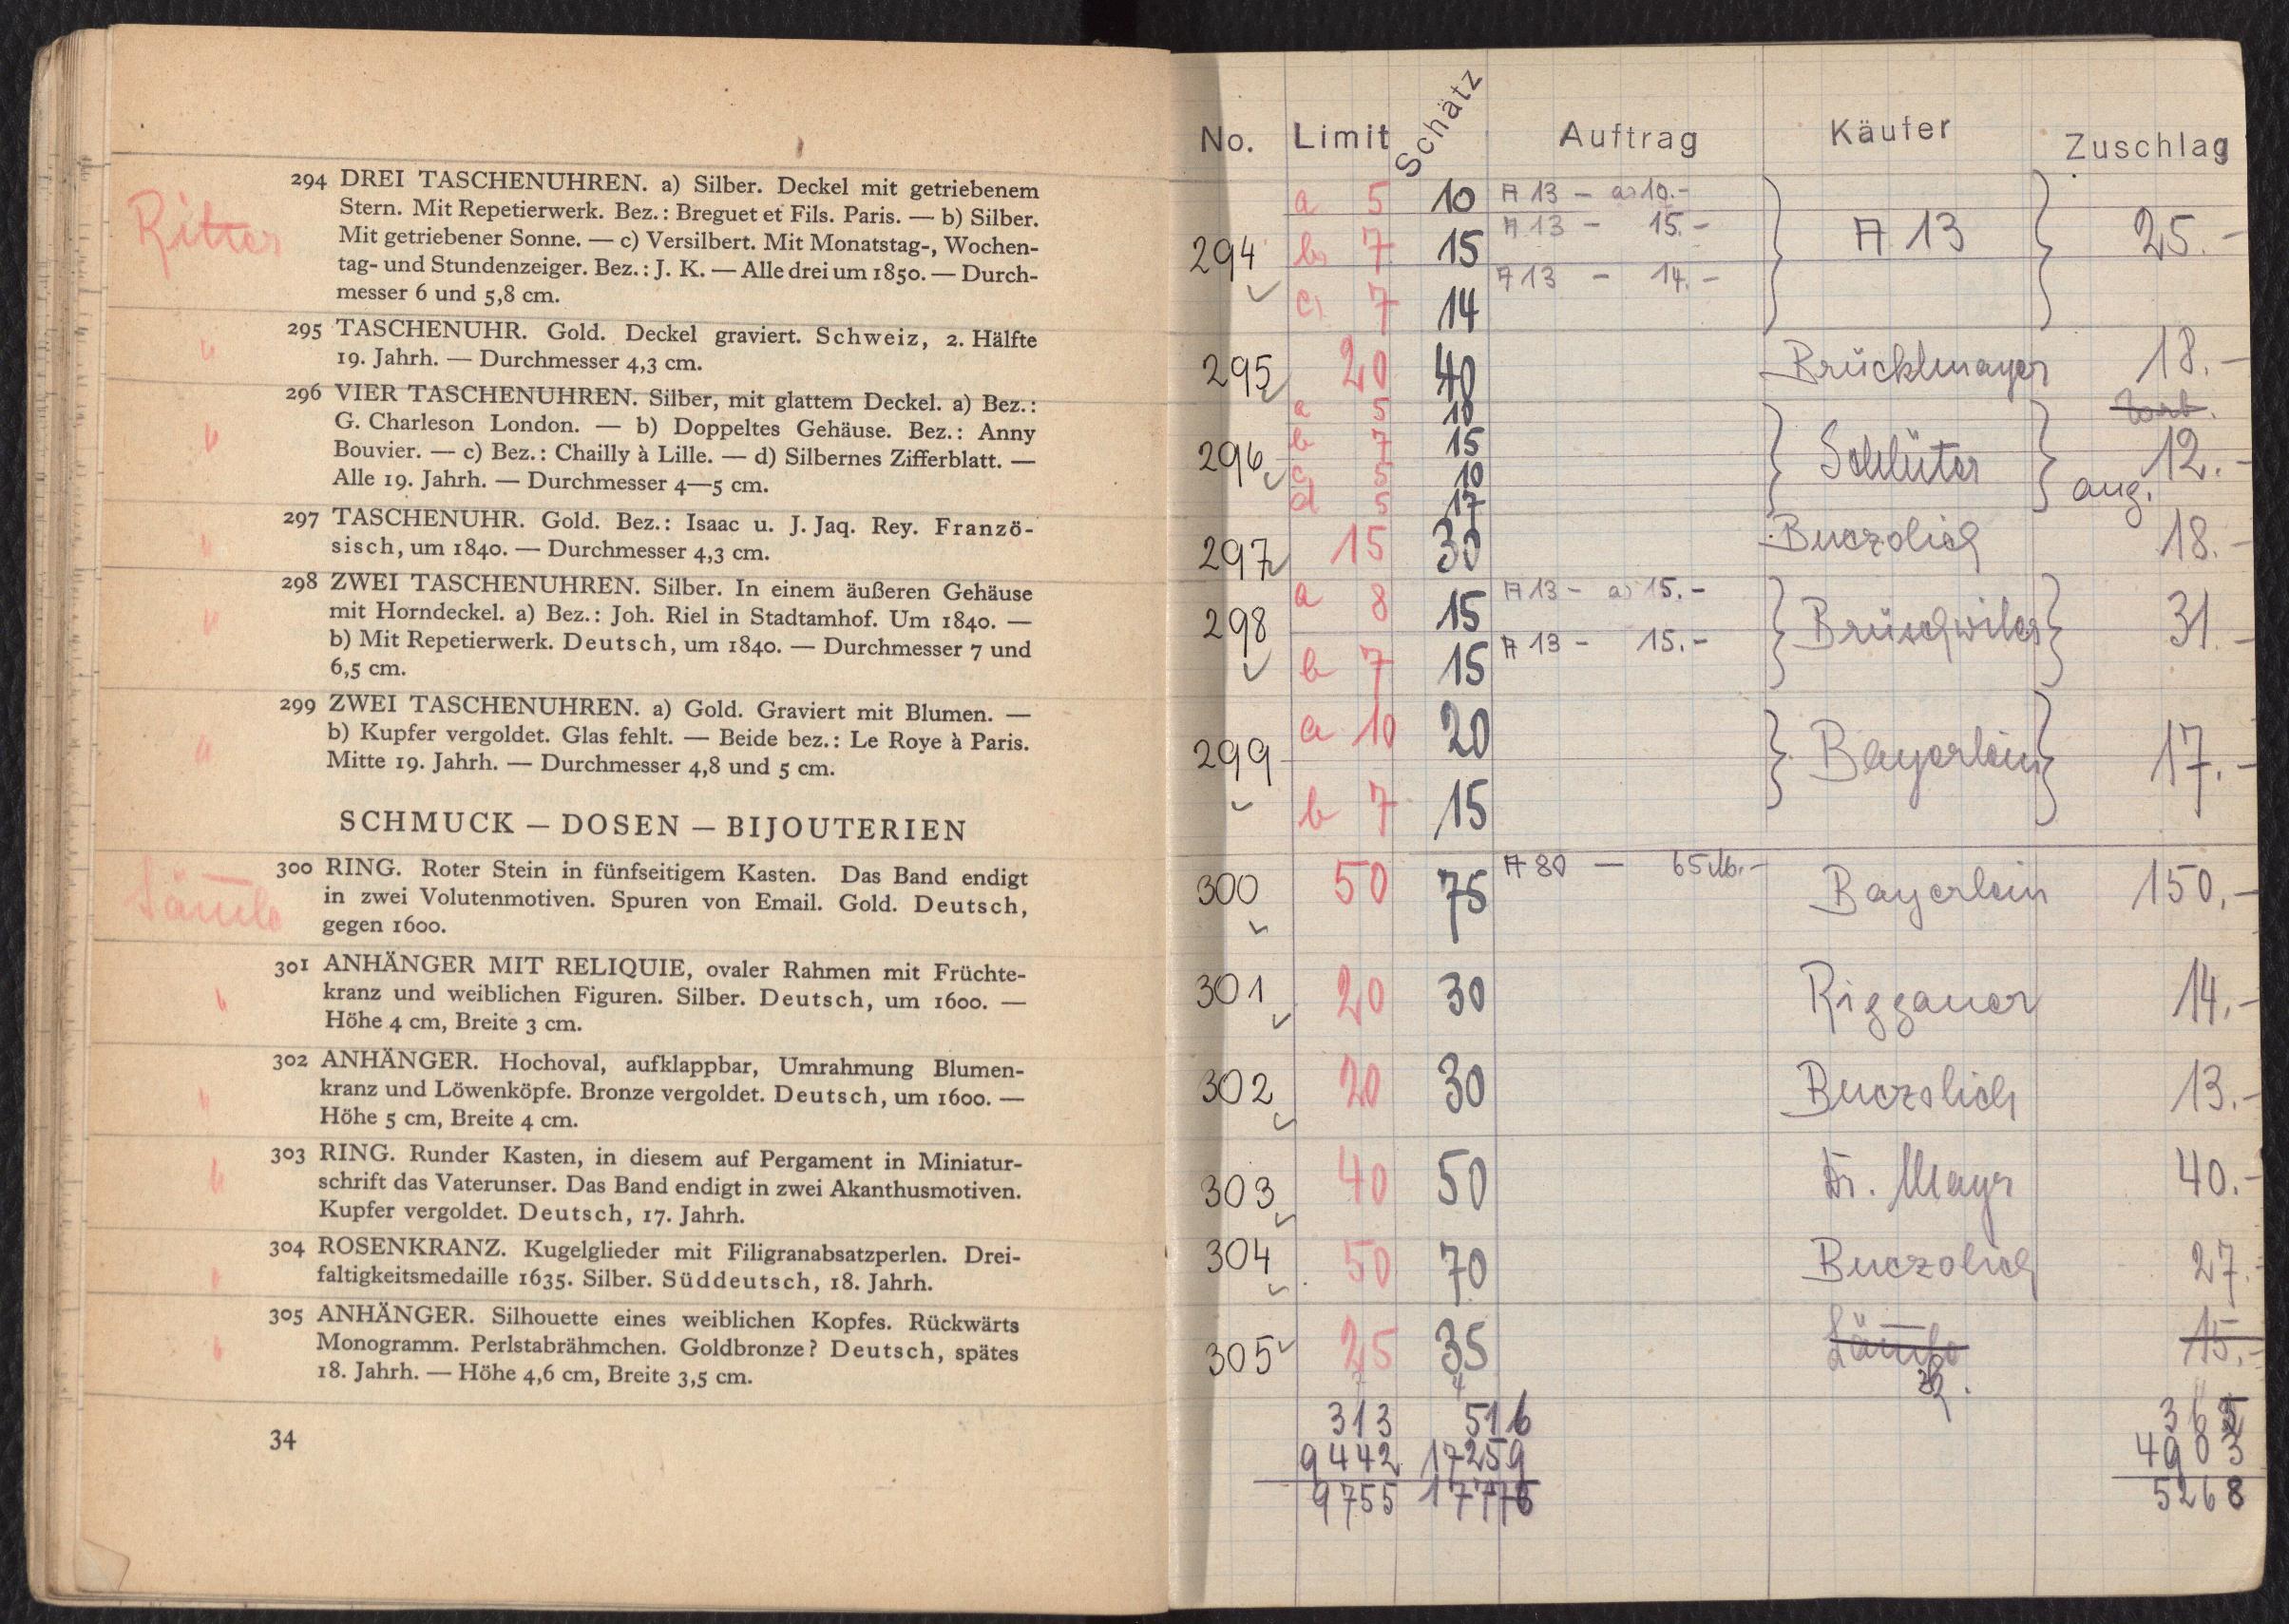 294 DREI TASCHENUHREN. a) Silber. Deckel mit getriebenem
Stern. Mit Repetierwerk. Bez.: Breguet et Fils. Paris. — b) Silber.
Mit getriebener Sonne. — c) Versilbert. Mit Monatstag-, Wochen-
tag- und Stundenzeiger. Bez.: J. K. — Alle drei um 1850. — Durch-
messer 6 und 5,8 cm.
Ritter
295 TASCHENUHR. Gold. Deckel graviert. Schweiz, 2. Hälfte
19. Jahrh. — Durchmesser 4,3 cm.
"
296 VIER TASCHENUHREN. Silber, mit glattem Deckel. a) Bez.:
G. Charleson London. — b) Doppeltes Gehäuse. Bez.: Anny
Bouvier. — c) Bez.: Chailly à Lille. — d) Silbernes Zifferblatt. —
Alle 19. Jahrh. — Durchmesser 4—5 cm.
"
297 TASCHENUHR. Gold. Bez.: Isaac u. J. Jaq. Rey. Franzö-
sisch, um 1840. — Durchmesser 4,3 cm.
"
298 ZWEI TASCHENUHREN. Silber. In einem äußeren Gehäuse
mit Horndeckel. a) Bez.: Joh. Riel in Stadtamhof. Um 1840. —
b) Mit Repetierwerk. Deutsch, um 1840. — Durchmesser 7 und
6,5 cm.
"
299 ZWEI TASCHENUHREN. a) Gold. Graviert mit Blumen. —
b) Kupfer vergoldet. Glas fehlt. — Beide bez.: Le Roye à Paris.
Mitte 19. Jahrh. — Durchmesser 4,8 und 5 cm.
"
SCHMUCK — DOSEN — BIJOUTERIEN
300 RING. Roter Stein in fünfseitigem Kasten. Das Band endigt
in zwei Volutenmotiven. Spuren von Email. Gold. Deutsch,
gegen 1600.
Lämle
301 ANHÄNGER MIT RELIQUIE, ovaler Rahmen mit Früchte-
kranz und weiblichen Figuren. Silber. Deutsch, um 1600. —
Höhe 4 cm, Breite 3 cm.
"
302 ANHÄNGER. Hochoval, aufklappbar, Umrahmung Blumen-
kranz und Löwenköpfe. Bronze vergoldet. Deutsch, um 1600. —
Höhe 5 cm, Breite 4 cm.
"
303 RING. Runder Kasten, in diesem auf Pergament in Miniatur-
schrift das Vaterunser. Das Band endigt in zwei Akanthusmotiven.
Kupfer vergoldet. Deutsch, 17. Jahrh.
"
304 ROSENKRANZ. Kugelglieder mit Filigranabsatzperlen. Drei-
faltigkeitsmedaille 1635. Silber. Süddeutsch, 18. Jahrh.
"
305 ANHÄNGER. Silhouette eines weiblichen Kopfes. Rückwärts
Monogramm. Perlstabrähmchen. Goldbronze? Deutsch, spätes
18. Jahrh. — Höhe 4,6 cm, Breite 3,5 cm.
"
34
No. Limit Schätz Auftrag Käufer Zuschlag
a 5 10 A 13 — a) 10.-
294 b 7 15 A 13 — 15.- A 13 25.-
c 7 14 A 13 — 14.-
295 20 40 Brücklmayer 18.-
a 5 10
b 7 15
296 Schlüter 12.-
c 5 10
d 5 17 ang.
297 15 30 Buczolich 18.-
a 8 15 A 13 — a) 15.-
298 Brüschwiler 31.-
b 7 15 A 13 — 15.-
a 10 20
299 Bayerlein 17.-
b 7 15
300 50 75 A 80 — 65 M.- Bayerlein 150.-
301 20 30 Riggauer 14.-
302 20 30 Buczolich 13.-
303 40 50 Dr. Mayr 40.-
304 50 70 Buczolich 27.-
305 25 35 Lämle 15.-
313 516
9442 17259 4903
9755 17776 5268